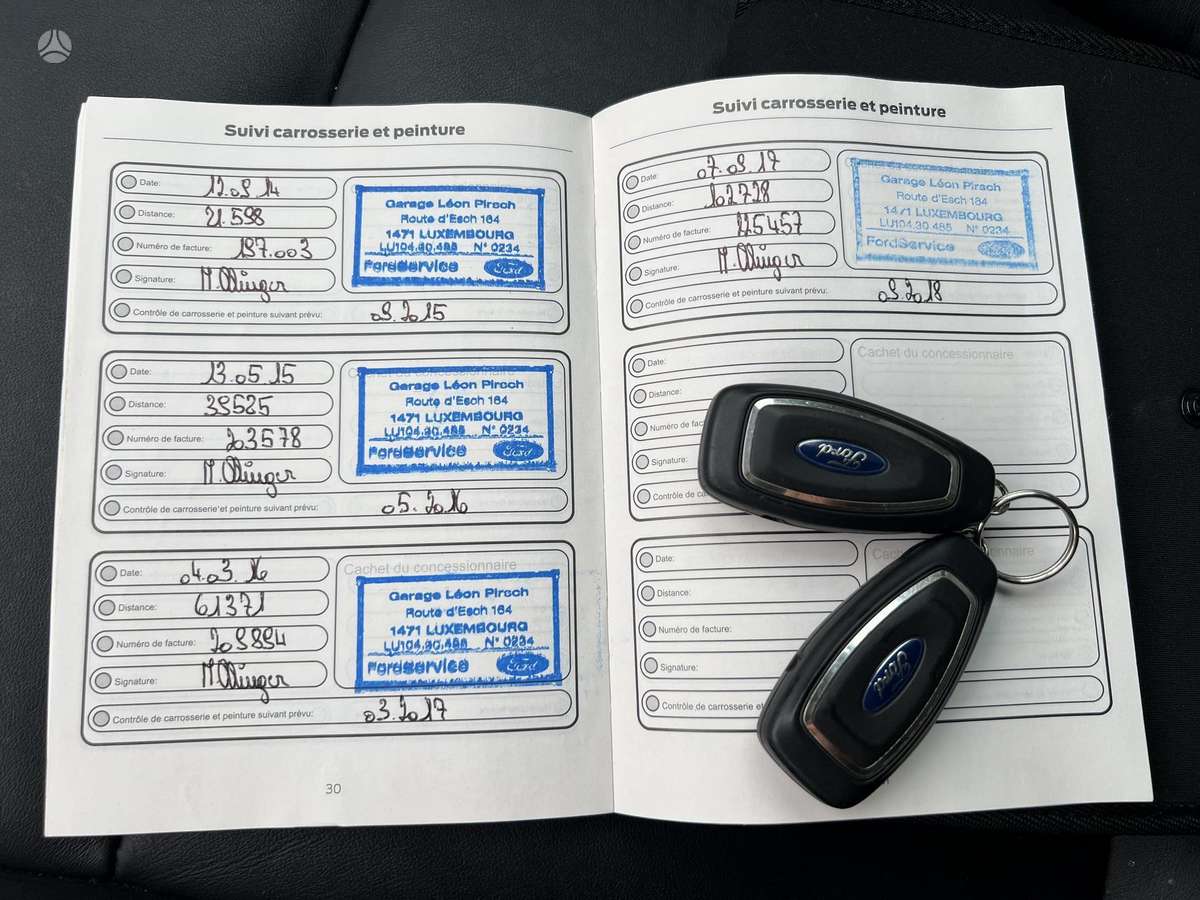 Suivi carrosserie et peinture
Date: 12.09.14
Distance: 21.598
Numéro de facture: 197.003
Signature:
Garage Léon Pirsch
Route d'Esch 164
1471 LUXEMBOURG
LU104.30.485 N° 0234
FordService Ford
Contrôle de carrosserie et peinture suivant prévu: 09.2015
Date: 13.05.15
Distance: 39525
Numéro de facture: 203578
Signature:
Cachet du concessionnaire
Garage Léon Pirsch
Route d'Esch 164
1471 LUXEMBOURG
LU104.30.485 N° 0234
FordService Ford
Contrôle de carrosserie et peinture suivant prévu: 05.2016
Date: 04.03.16
Distance: 61371
Numéro de facture: 209894
Signature:
Cachet du concessionnaire
Garage Léon Pirsch
Route d'Esch 164
1471 LUXEMBOURG
LU104.30.485 N° 0234
FordService Ford
Contrôle de carrosserie et peinture suivant prévu: 03.2017
30
Suivi carrosserie et peinture
Date: 07.09.17
Distance: 102728
Numéro de facture: 225457
Signature:
Garage Léon Pirsch
Route d'Esch 164
1471 LUXEMBOURG
LU104.30.485 N° 0234
FordService Ford
Contrôle de carrosserie et peinture suivant prévu: 09.2018
Date:
Distance:
Numéro de fac
Signature:
Cachet du concessionnaire
Contrôle de ca
Ford
Date:
Distance:
Numéro de facture:
Signature:
Cach
nnaire
Contrôle de carrosserie et
Ford